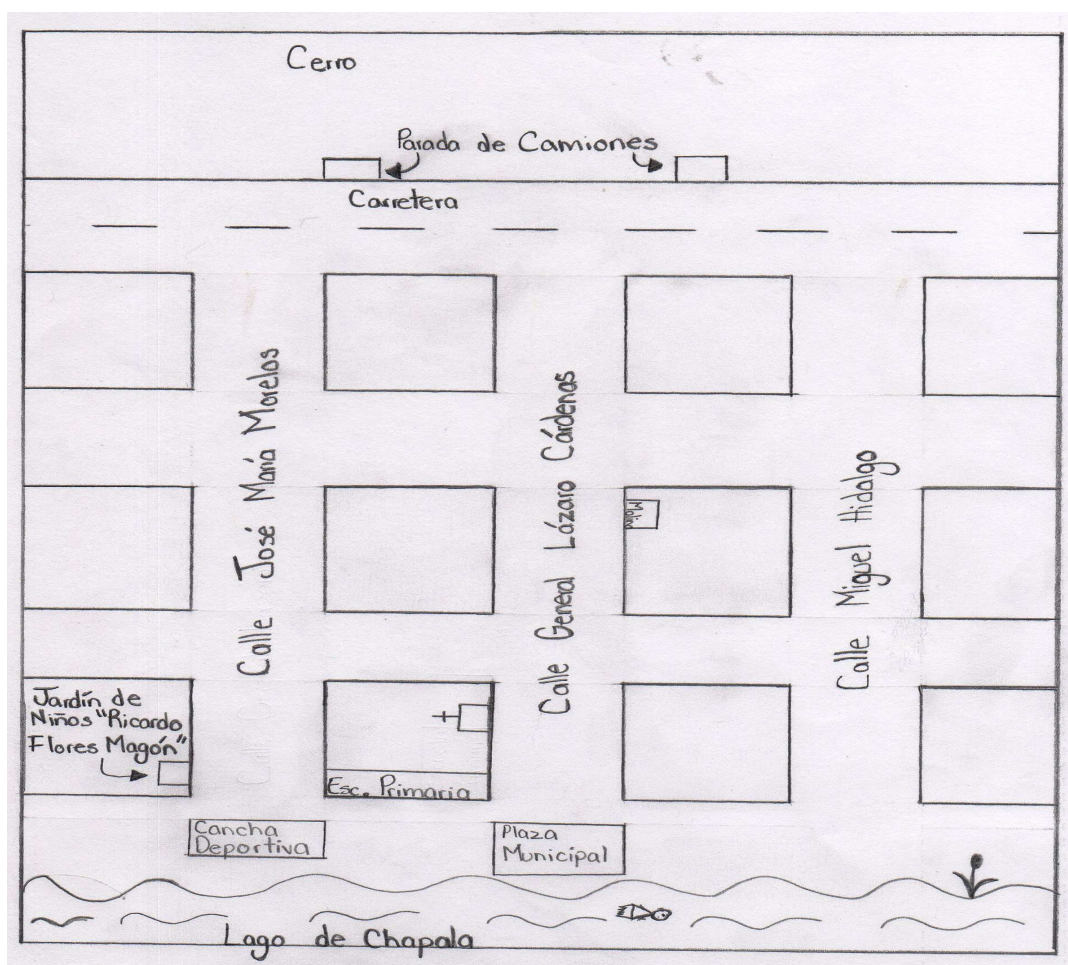 Cerro
Parada de Camiones
Carretera
Calle José María Morelos
Calle General Lázaro Cárdenas
Calle Miguel Hidalgo
Jardín de
Niños "Ricardo
Flores Magón"
Esc. Primaria
Cancha
Deportiva
Plaza
Municipal
Lago de Chapala